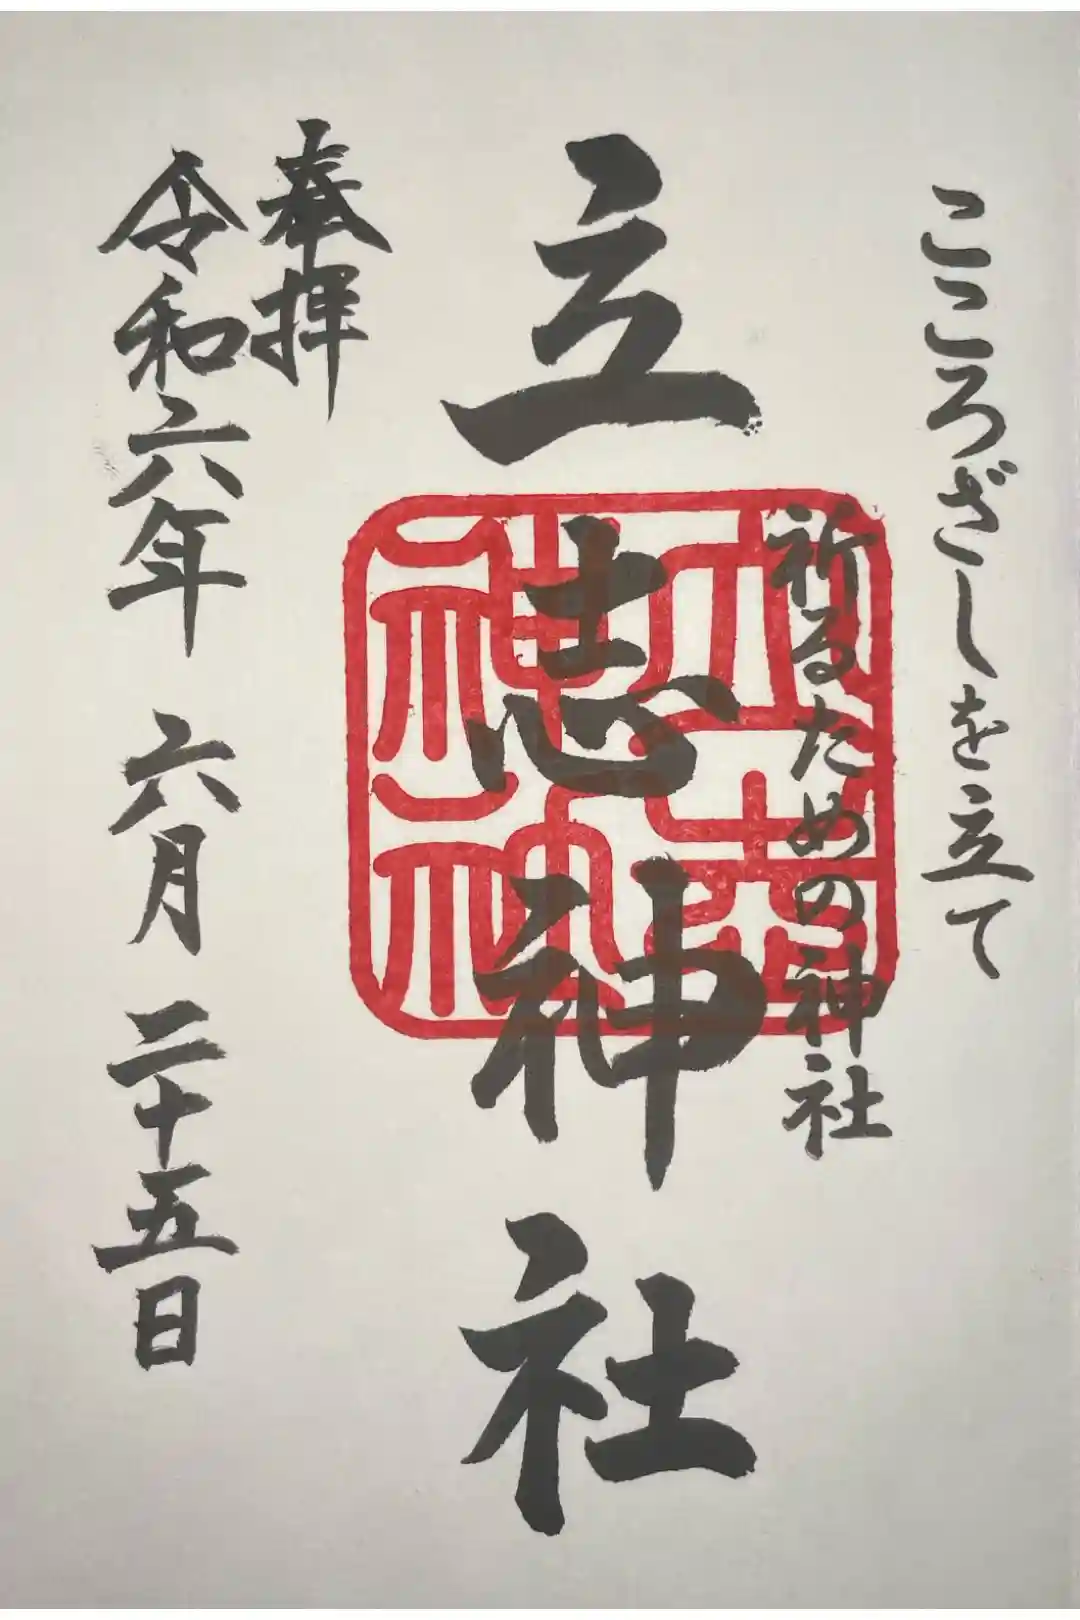 こころざしを立て
祈るための神社
立志神社
奉拝
令和六年 六月 二十五日